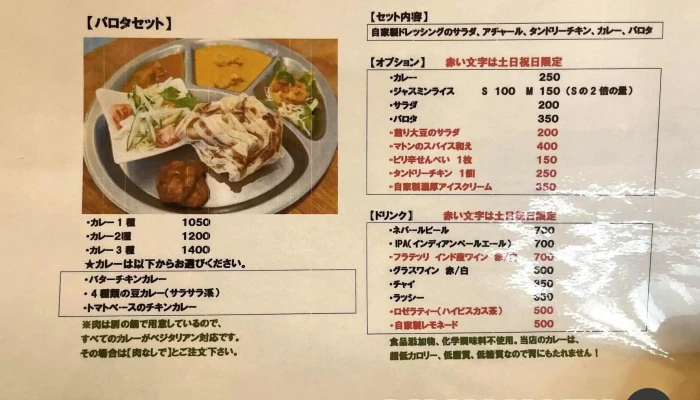 【パロタセット】
・カレー1種 1050
・カレー2種 1200
・カレー3種 1400
★カレーは以下からお選びください。
・バターチキンカレー
・4種類の豆カレー(サラサラ系)
・トマトベースのチキンカレー
※肉は別の鍋で用意しているので、
すべてのカレーがベジタリアン対応です。
その場合は【肉なしで】とご注文下さい。
【セット内容】
自家製ドレッシングのサラダ、アチャール、タンドリーチキン、カレー、パロタ
【オプション】 赤い文字は土日祝日限定
・カレー 250
・ジャスミンライス S 100 M 150(Sの2倍の量)
・サラダ 200
・パロタ 350
・煎り大豆のサラダ 200
・マトンのスパイス和え 400
・ピリ辛せんべい 1枚 150
・タンドリーチキン 1個 250
・自家製濃厚アイスクリーム 350
【ドリンク】 赤い文字は土日祝日限定
・ネパールビール 700
・IPA(インディアンペールエール) 700
・フラテッリ インド産ワイン 赤/白 700
・グラスワイン 赤/白 500
・チャイ 350
・ラッシー 350
・ロゼラティー(ハイビスカス茶) 500
・自家製レモネード 500
食品添加物、化学調味料不使用。当店のカレーは、
超低カロリー、低脂質、低糖質なので胃にもたれません!